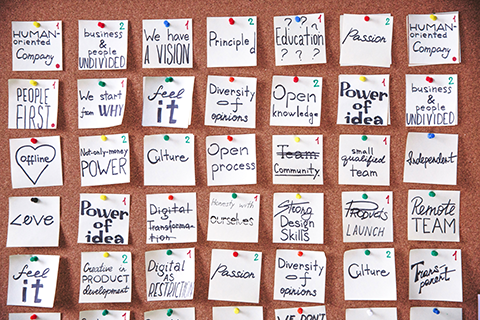 HUMAN-
oriented
Company
2
business
&
people
UNDIVIDED
1
We have
A VISION
2
Principled
1
Education
? ? ?
? ? ?
2
Passion
HUMAN-
oriented
Company
PEOPLE
FIRST
1
We start
from WHY
2
feel
it
Diversity
of
opinions
2
Open
knowledge
1
Power
of idea
2
business
&
people
UNDIVIDED
offline
2
Not-only-money
POWER
2
Culture
1
Open
process
1
Team
Community
small
qualified
team
Independent
Love
1
Power
of idea
Digital
Transforma-
tion
Honesty with
ourselves
Strong
Design
Skills
1
LAUNCH
Remote
TEAM
feel
it
2
Creative in
PRODUCT
development
1
Digital
AS
RESTRICTION
2
Passion
Diversity
of
opinions
2
Culture
1
Trans-
parent
2
1
WE DON'T